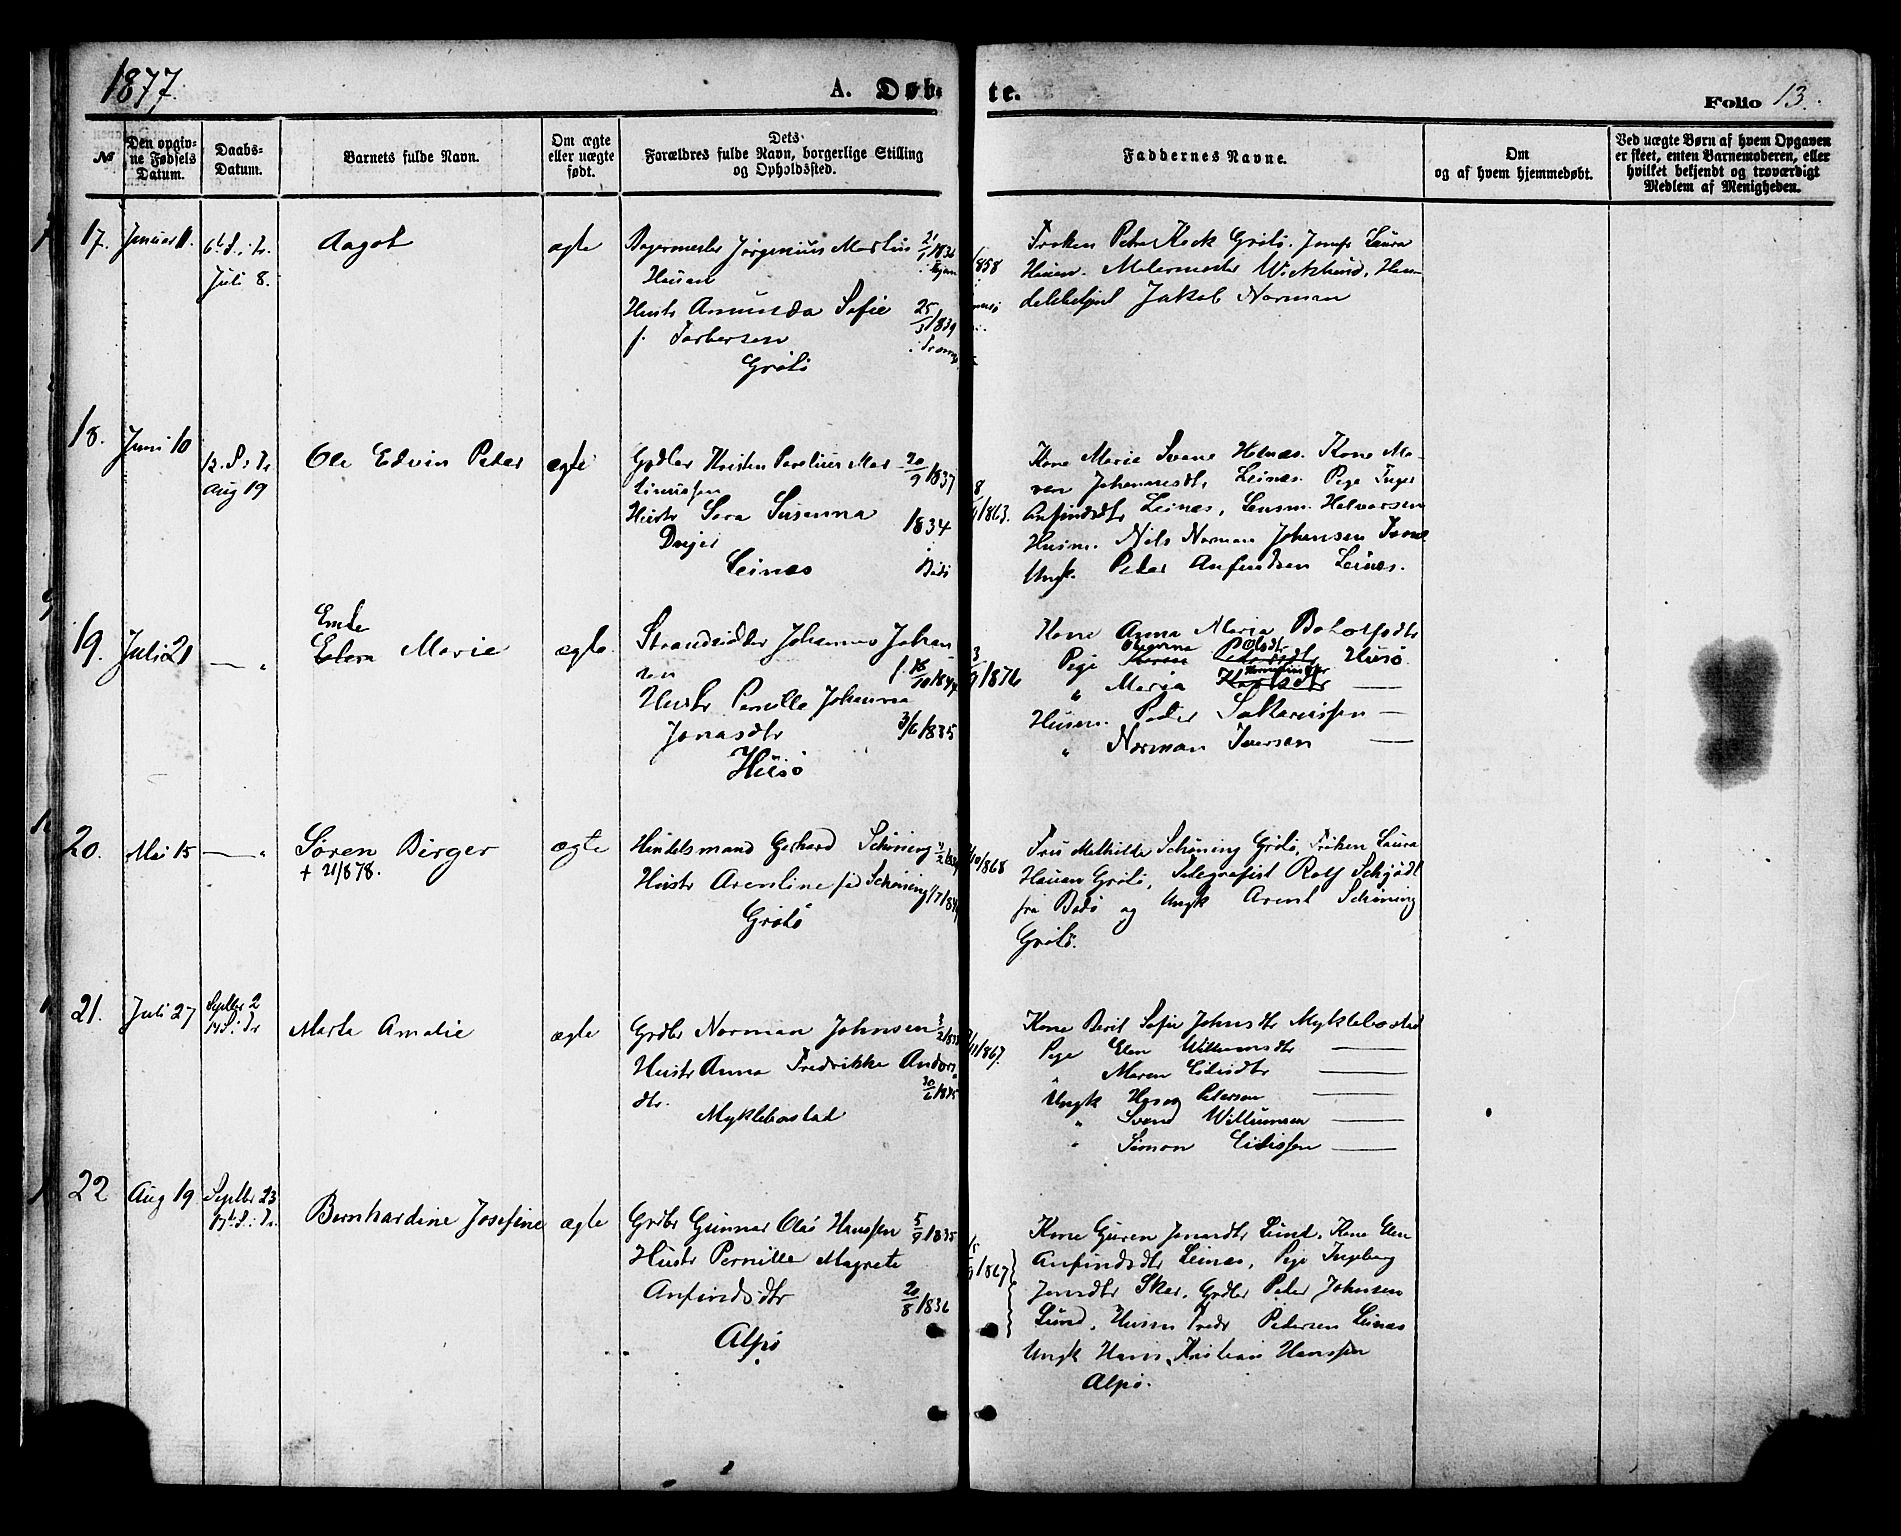 1877.
A. Døb-
te.
Folio 13.
№
Den opgiv-
ne Fødsels
Datum.
Daabs-
Datum.
Barnets fulde Navn.
Om ægte
eller uægte
født.
Dets
Forældres fulde Navn, borgerlige Stilling
og Opholdssted.
Faddernes Navne.
Om
og af hvem hjemmedøbt.
Ved uægte Børn af hvem Opgaven
er skeet, enten Barnemoderen, eller
hvilket bekjendt og troværdigt
Medlem af Menigheden.
17. Januar 1.
6t S. i Tr.
Juli 8.
Aagot
ægte
Bagermester Jørginius Martin
Hauan
Hustr Amunda Sofie 25/3 1839
f. Torbersen
Grötö
1858
Frøken Petra Kock Grötö. Jomfr Laura
Hauan. Malermester Wicklund, Han-
delsbetjent Jakob Norman
18. Juni 10
12. S. i Tr
Aug 19
Ole Edvin Peder
ægte
Gdbr Kristen Pavelius Mar 20/9 1837
tinussen
Hustr Sara Susanna 1834
Drejer
Leinæs Bodö
8/ 1863.
Kone Maria Svane Helnæs. Kone Ma-
ren Johannesdtr, Leinæs. Pige Inger
Anfindsdtr Leinæs, Lensm. Halvorsen
Husm. Nils Norman Johansen
Ungk. Peder Anfindsen Leinæs.
19. Juli 21
— "
Emte
Elera Marie
ægte
Strandsidder Johannes Johan
sen f. 18/10 1844
Hustr Pernille Johanna
Jonasdtr 3/6 1835
Husö
3/9 1876
Kone Anna Maria Bototfsdtr
Olsdtr
Pige Karen Pedersdtr Husö
" Maria —
Husm. Peder Sakariassen —
" Norman Iversen —
20. Mai 15
— "
Sören Birger
+ 21/878.
ægte
Handelsmand Gerhard Schöning
Hustr Arentine fød Schöning 1/7
Grötö
/10 1868
Fru Mathilde Schöning Grötö, Fröken Laura
Hauan Grötö, Telegrafist Rolf Schjödt
fra Bodö og Ungk Arent Schöning
Grötö.
21. Juli 27
Septbr 2
14 S. i Tr
Marta Amalie
ægte
Grdbr Norman Johnsen
Hustr Anna Fredrikke Anders
dtr.
Myklebostad
/11 1867.
Kone Berit Sofie Johnsdtr Myklebostad
Pige Elen Willumsdtr —
" Maren Eidisdtr —
Ungk Haag Petersen —
" Svend Willumsen —
" Simon Eidissen —
22 Aug 19.
Septbr 23
17t S. i Tr.
Bernhardine Josefine
ægte
Grdbr Gunnar Olai Hanssen 5/9 1835
Hustr Pernille Magrete
Anfindsdtr 20/8 1836
Alpö
1867
Kone Guren Jonasdtr Lund, Kone Elen
Anfindsdtr Leinæs, Pige Ingeborg
Jonsdtr Skar, Grdbr Peder Johnsen
Lund, Husm Peder Pedersen Leinæs
Ungk Hans Kristian Hanssen
Alpö.